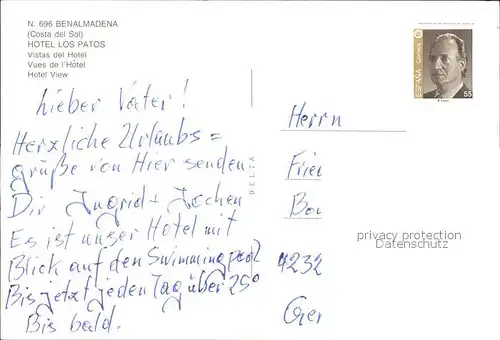 N. 696 BENALMADENA
(Costa del Sol)
HOTEL LOS PATOS
Vistas del Hotel
Vues de l'Hôtel
Hotel View
lieber Vater!
Herzliche Urlaubs=
grüße von Hier senden
Dir Ingrid + Jochen
Es ist unser Hotel mit
Blick auf den Swimmingpool
Bis jetzt jeden Tag über 25°
Bis bald.
DELTA
ESPAÑA
Correos
55
Herrn
Frie
Bo
4232
Ger
privacy protection
Datenschutz